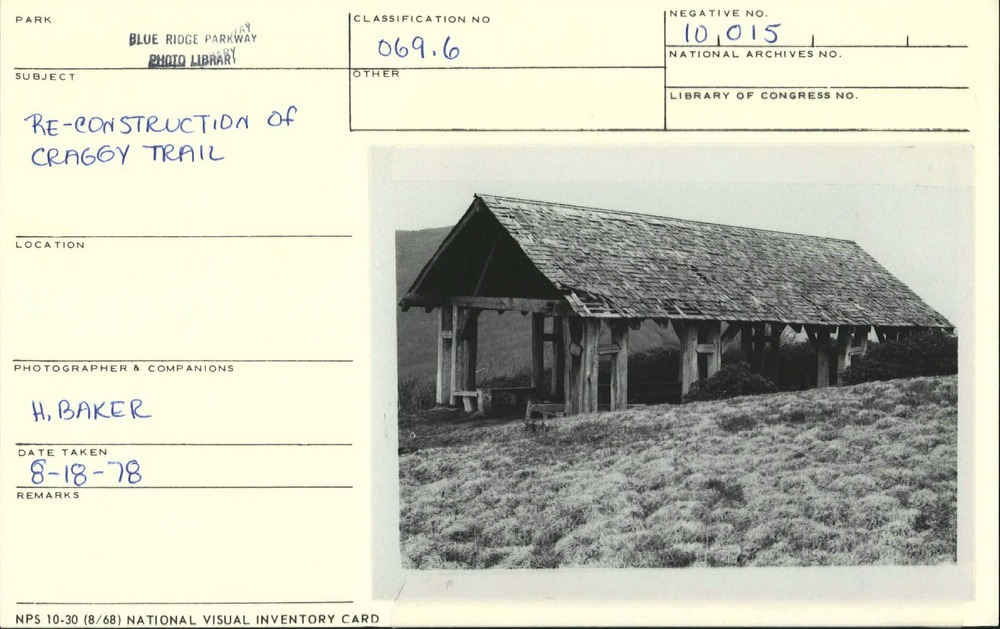 PARK
BLUE RIDGE PARKWAY
PHOTO LIBRARY
CLASSIFICATION NO
069.6
NEGATIVE NO.
10,015
NATIONAL ARCHIVES NO.
SUBJECT
OTHER
LIBRARY OF CONGRESS NO.
RE-CONSTRUCTION OF
CRAGGY TRAIL
LOCATION
PHOTOGRAPHER & COMPANIONS
H. BAKER
DATE TAKEN
8-18-78
REMARKS
NPS 10-30 (8/68) NATIONAL VISUAL INVENTORY CARD